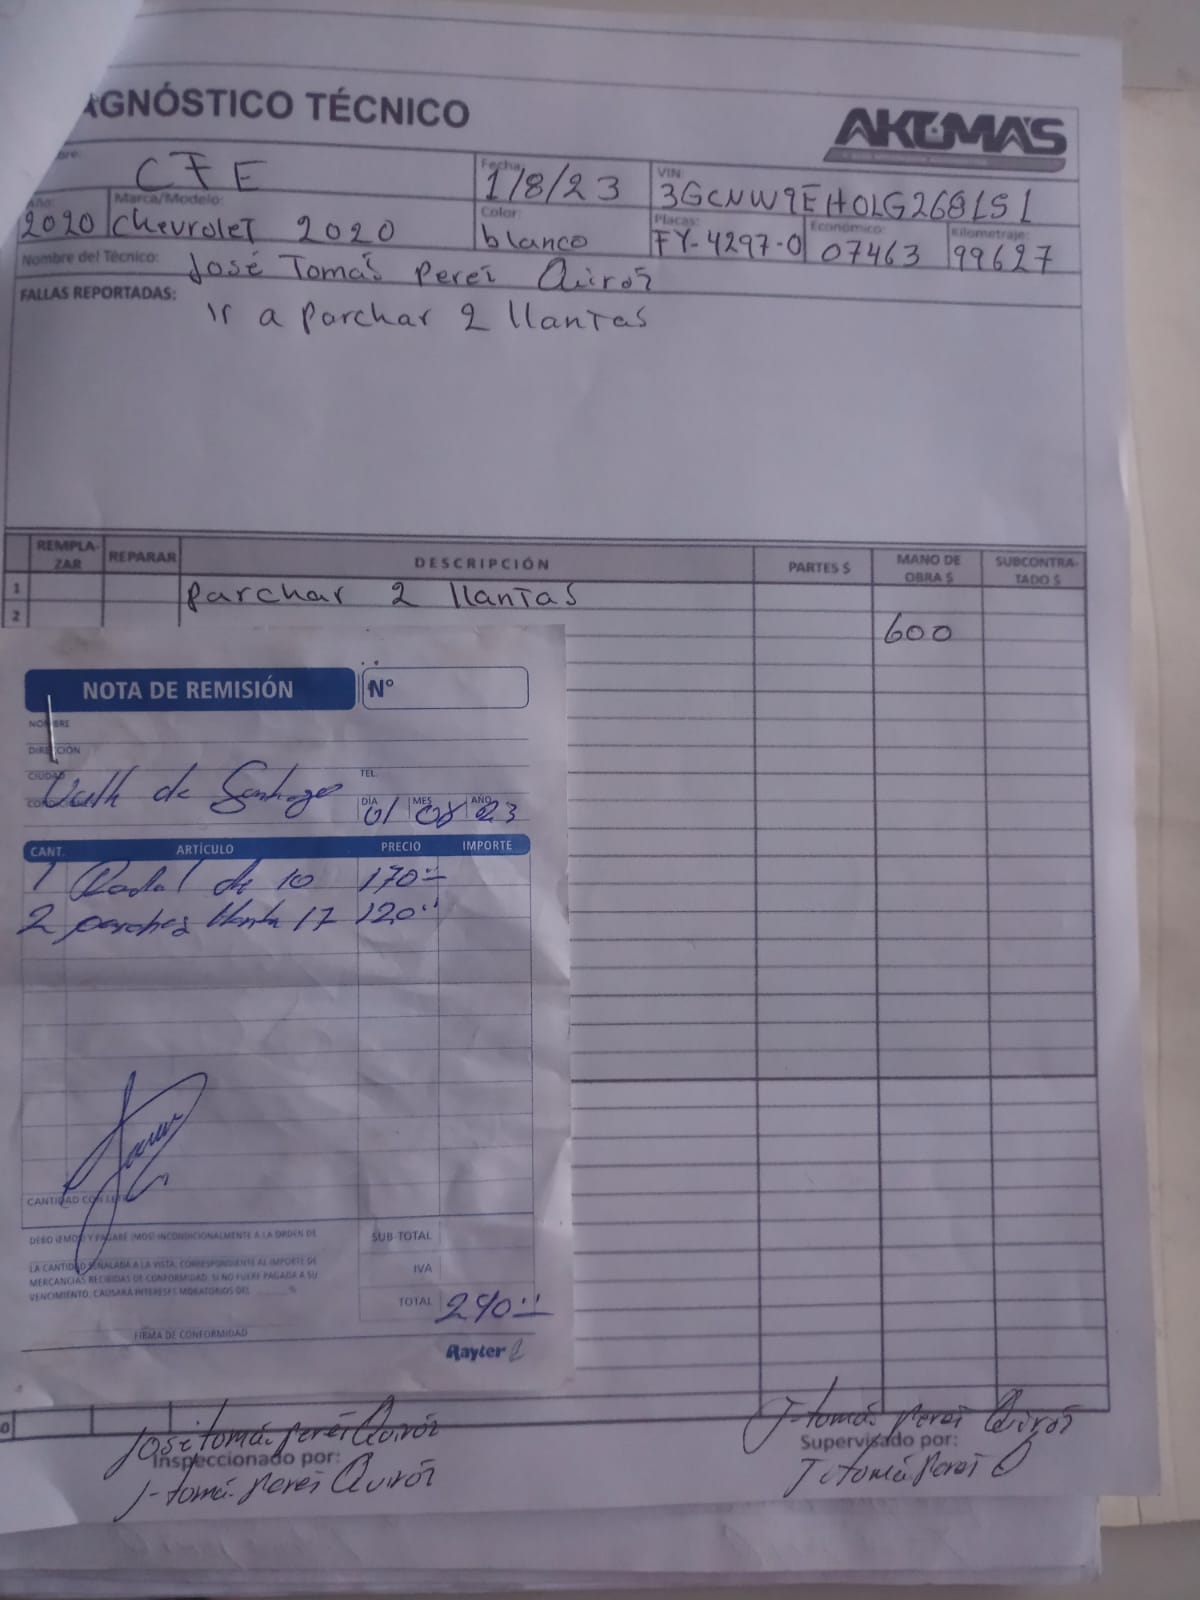 AGNÓSTICO TÉCNICO
AKUMAS
bre:
CFE
Fecha:
1/8/23
VIN:
3GCNW9EH0LG268151
Año:
2020
Marca/Modelo:
Chevrolet 2020
Color:
blanco
Placas:
FY-4297-0
Económico:
07463
Kilometraje:
99627
Nombre del Técnico: José Tomás Perez Quiroz
FALLAS REPORTADAS:
Ir a Parchar 2 llantas
REMPLA-ZAR REPARAR DESCRIPCIÓN PARTES $ MANO DE OBRA $ SUBCONTRA-TADO $
1 Parchar 2 llantas
2 600
NOTA DE REMISIÓN Nº
NOMBRE
DIRECCIÓN
CIUDAD TEL.
Valle de Santiago
DÍA MES AÑO
01 08 23
CANT. ARTÍCULO PRECIO IMPORTE
1 Radial de 10 170
2 parches llanta 17 120
CANTIDAD CON LET
DEBO (EMOS) Y PAGARÉ (MOS) INCONDICIONALMENTE A LA ORDEN DE
LA CANTIDAD SEÑALADA A LA VISTA, CORRESPONDIENTE AL IMPORTE DE
MERCANCIAS RECIBIDAS DE CONFORMIDAD. SI NO FUERE PAGADA A SU
VENCIMIENTO, CAUSARÁ INTERESES MORATORIOS DEL %
SUB-TOTAL
IVA
TOTAL 290
FIRMA DE CONFORMIDAD
Rayter
José tomás Perez Quiroz
Inspeccionado por:
J-tomás Perez Quiroz
J-tomás Perez Quiroz
Supervisado por: